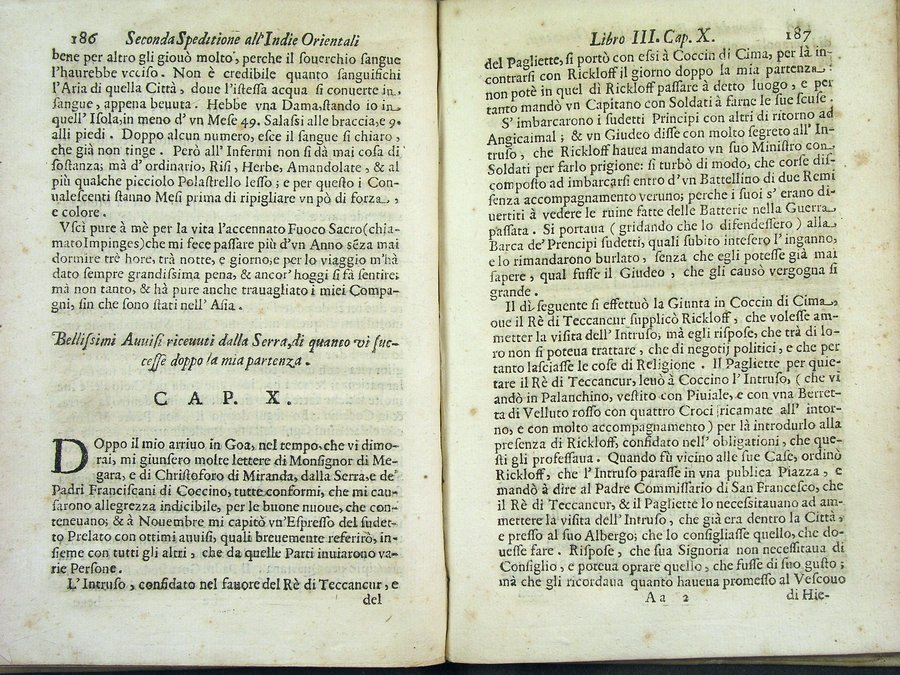 186 Seconda Speditione all'Indie Orientali
bene per altro gli giouò molto, perche il souerchio sangue
l'haurebbe vcciso. Non è credibile quanto sanguifichi
l'Aria di quella Città, doue l'istessa acqua si conuerte in
sangue, appena beuuta. Hebbe vna Dama, stando io in
quell'Isola, in meno d'vn Mese 49. Salassi alle braccia, e 9.
alli piedi. Doppo alcun numero, esce il sangue sì chiaro,
che già non tinge. Però all'Infermi non si dà mai cosa di
sostanza; mà d'ordinario, Risi, Herbe, Amandolate, & al
più qualche picciolo Polastrello lesso; e per questo i Con-
ualescenti stanno Mesi prima di ripigliare vn pò di forza,
e colore.
Vscì pure à mè per la vita l'accennato Fuoco Sacro (chia-
mato Impinges) che mi fece passare più d'vn Anno sẽza mai
dormire trè hore, trà notte, e giorno, e per lo viaggio m'hà
dato sempre grandissima pena, & ancor'hoggi si fà sentire;
mà non tanto, & hà pure anche trauagliato i miei Compa-
gni, sin che sono stati nell'Asia.
Bellissimi Auuisi riceuuti dalla Serra, di quanto vi suc-
cesse doppo la mia partenza.
CAP. X.
DOppo il mio arriuo in Goa, nel tempo, che vi dimo-
rai, mi giunsero molte lettere di Monsignor di Me-
gara, e di Christoforo di Miranda, dalla Serra, e de'
Padri Franciscani di Coccino, tutte conformi, che mi cau-
sarono allegrezza indicibile, per le buone nuoue, che con-
teneuano; & à Nouembre mi capitò vn'Espresso del sudet-
to Prelato con ottimi auuisi, quali breuemente referirò, in-
sieme con tutti gli altri, che da quelle Parti inuiarono va-
rie Persone.
L'Intruso, confidato nel fauore del Rè di Teccancur, e
del
Libro III. Cap. X. 187
del Pagliette, si portò con essi à Coccin di Cima, per là in-
contrarsi con Rickloff il giorno doppo la mia partenza:
non potè in quel dì Rickloff passare à detto luogo, e per
tanto mandò vn Capitano con Soldati à farne le sue scuse.
S'imbarcorono i sudetti Principi con altri di ritorno ad
Angicaimal; & vn Giudeo disse con molto segreto all'In-
truso, che Rickloff hauea mandato vn suo Ministro con
Soldati per farlo prigione: si turbò di modo, che corse dis-
composto ad imbarcarsi entro d'vn Battellino di due Remi
senza accompagnamento veruno; perche i suoi s'erano di-
uertiti à vedere le ruine fatte delle Batterie nella Guerra
passata. Si portaua (gridando che lo difendessero) alla
Barca de' Prencipi sudetti, quali subito intesero l'inganno,
e lo rimandarono burlato, senza che egli potesse già mai
sapere, qual fusse il Giudeo, che gli causò vergogna sì
grande.
Il dì seguente si effettuò la Giunta in Coccin di Cima,
oue il Rè di Teccancur supplicò Rickloff, che volesse am-
metter la visita dell'Intruso, mà egli rispose, che trà di lo-
ro non si poteua trattare, che di negotij politici, e che per
tanto lasciasse le cose di Religione. Il Pagliette per quie-
tare il Rè di Teccancur, leuò à Coccino l'Intruso, (che vi
andò in Palanchino, vestito con Piuiale, e con vna Berret-
ta di Velluto rosso con quattro Croci ricamate all'intor-
no, e con molto accompagnamento) per là introdurlo alla
presenza di Rickloff, confidato nell'obligationi, che que-
sti gli professaua. Quando fù vicino alle sue Case, ordinò
Rickloff, che l'Intruso parasse in vna publica Piazza, e
mandò à dire al Padre Commissario di San Francesco, che
il Rè di Teccancur, & il Pagliette lo necessitauano ad am-
mettere la visita dell'Intruso, che già era dentro la Città,
e presso al suo Albergo; che lo consigliasse quello, che do-
uesse fare. Rispose, che sua Signoria non necessitaua di
Consiglio, e poteua oprare quello, che fusse di suo gusto;
mà che gli ricordaua quanto haueua promesso al Vescouo
Aa 2 di Hie-